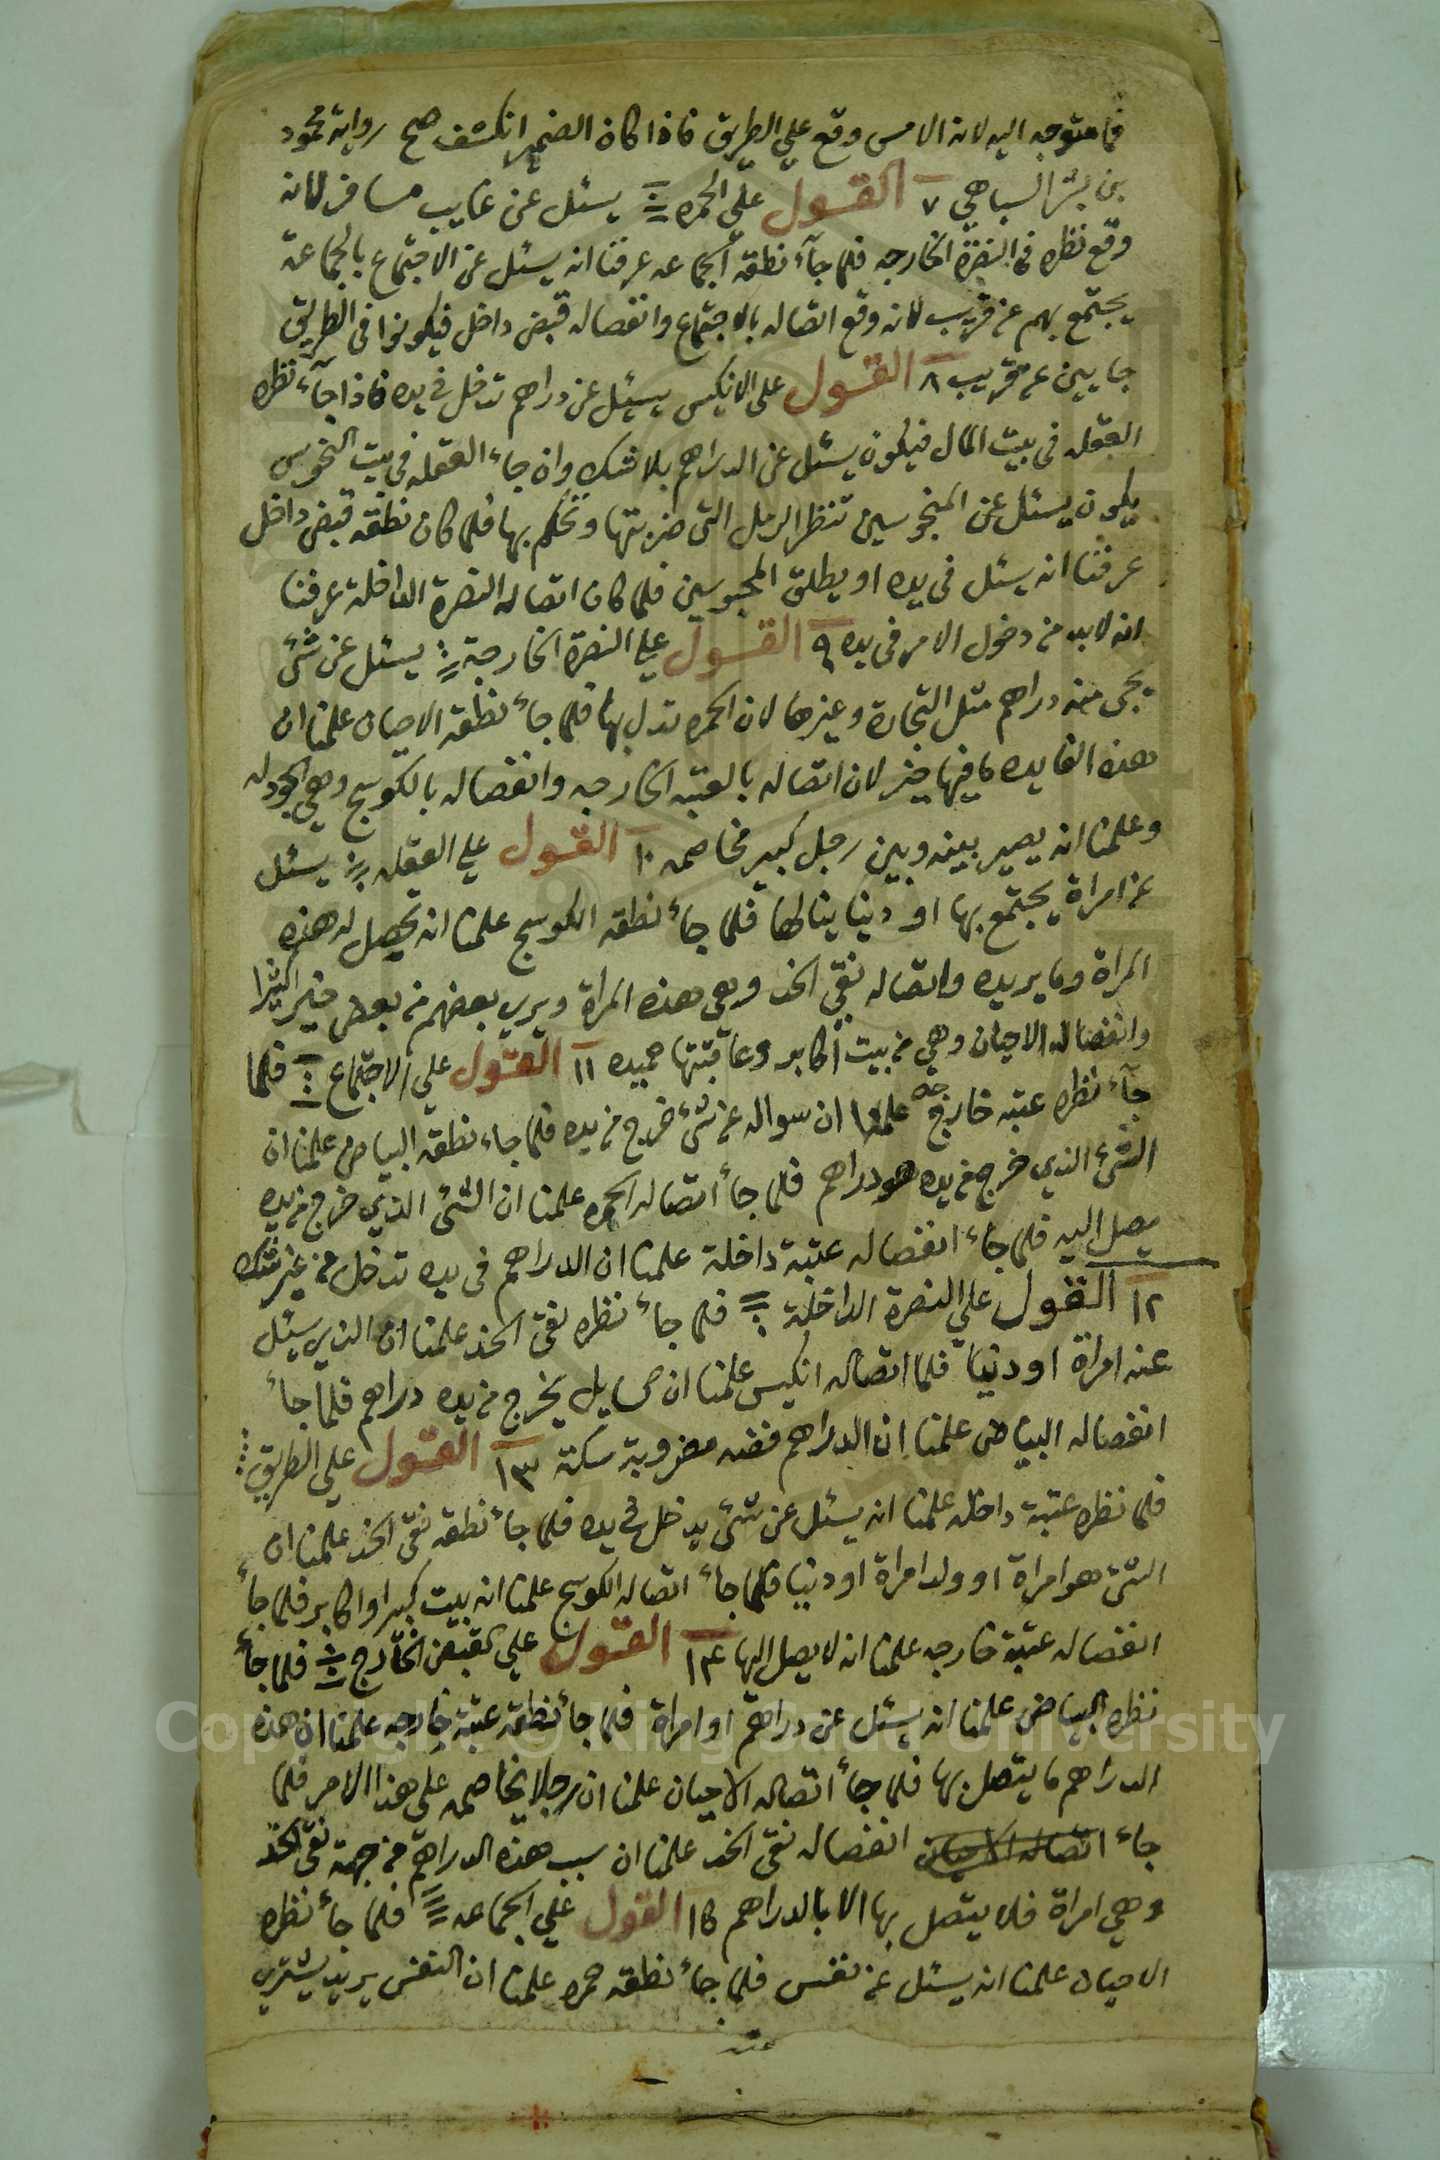 فما متوجه اليه لانه الامس وقع علي الطريق فاذا كان الضمير انكشف صح رواية محمود
بن بشر السباهي ٧ القول علي الحمره يسئل عن غايب مسافر لانه
وقع نظره في النصرة الخارجه فلما جآء نطقه الجماعه عرفنا انه يسئل عن الاجتماع بالجماعة
يجتمع بهم عن قريب لانه وقع اتصاله بالاجتماع وانفصاله قبض داخل فيكونوا في الطريق
جايين عن قريب ٨ القول علي الانكيس يسئل عن دراهم تدخل في يده فاذا جآء نظره
العقله في بيت المال فيكون يسئل عن الدراهم بلا شك وان جاء العقله في بيت النحوس
يكون يسئل عن المنحوسين تنظر الرمل التي ضربتها وتحكم بها فلما كان نطقه قبض داخل
عرفنا انه يسئل في يده او يطلق المحبوسين فلما كان اتصاله النصرة الداخلة عرفنا
انه لابد من دخول الامر في يده ٩ القول علي النصرة الخارجة يسئل عن شئ
يجي منه دراهم مثل التجارة وغيرها لان الحمره تدل بها فلما جاء نطقه الاحيان علمنا ان
هذه الفايده ما فيها خير لان اتصاله بالعتبه الخارجه وانفصاله بالكوسج وهي الجودله
وعلمنا انه يصير بينه وبين رجل كبير مخاصمه ١٠ القول علي العقله يسئل
عن امراة يجتمع بها او دنيا ينالها فلما جاء نطقه الكوسج علمنا انه يحصل له هذه
المراة وما يريده واتصاله نقي الخد وهي هذه المراة ويري بعضهم من بعض خير كثيرا
وانفصاله الاحيان وهي من بيت اكابر وعاقبتها حميده ١١ القول علي الاجتماع فلما
جآء نظره عتبه خارجه علمنا ان سواله عن شئ خرج من يده فلما جاء نطقه البياض علمنا ان
الشئ الذي خرج من يده هو دراهم فلما جاء اتصاله الحمره علمنا ان الشئ الذي خرج من يده
يصل اليه فلما جاء انفصاله عتبة داخلة علمنا ان الدراهم في يده تدخل من غير شك
١٢ القول علي النصرة الداخلة فلما جاء نظره نقي الخد علمنا ان الذي يسئل
عنه امراة او دنيا فلما اتصاله انكيس علمنا ان يخرج من يده دراهم فلما جاء
انفصاله البياض علمنا ان الدراهم فضه مضروبة سكة ١٣ القول علي الطريق
فلما نظره عتبة داخله علمنا انه يسئل عن شئ يدخل في يده فلما جاء نطقه نقي الخد علمنا ان
الشئ هو امراة او ولد امراة او دنيا فلما جاء اتصاله الكوسج علمنا انه بيت كبير او اكابر فلما جاء
انفصاله عتبة خارجه علمنا انه لا يصل اليها ١٤ القول علي القبض الخارج فلما جاء
نظره البياض علمنا انه يسئل عن دراهم او امراة فلما جاء نطقه عتبة خارجه علمنا ان هذه
الدراهم ما يتصل بها فلما جاء اتصاله الاحيان علمنا ان رجلا يخاصمه علي هذا الامر فلما
جاء اتصاله الاحيان انفصاله نقي الخد علمنا ان سبب هذه الدراهم من جهة نقي الخد
وهي امراة فلا يتصل بها الا بالدراهم ١٥ القول علي الجماعه فلما جاء نظره
الاحيان علمنا انه يسئل عن نفس فلما جاء نطقه حمره علمنا ان النفس يريد يشتري
عتبه
Copyright © King Saud University